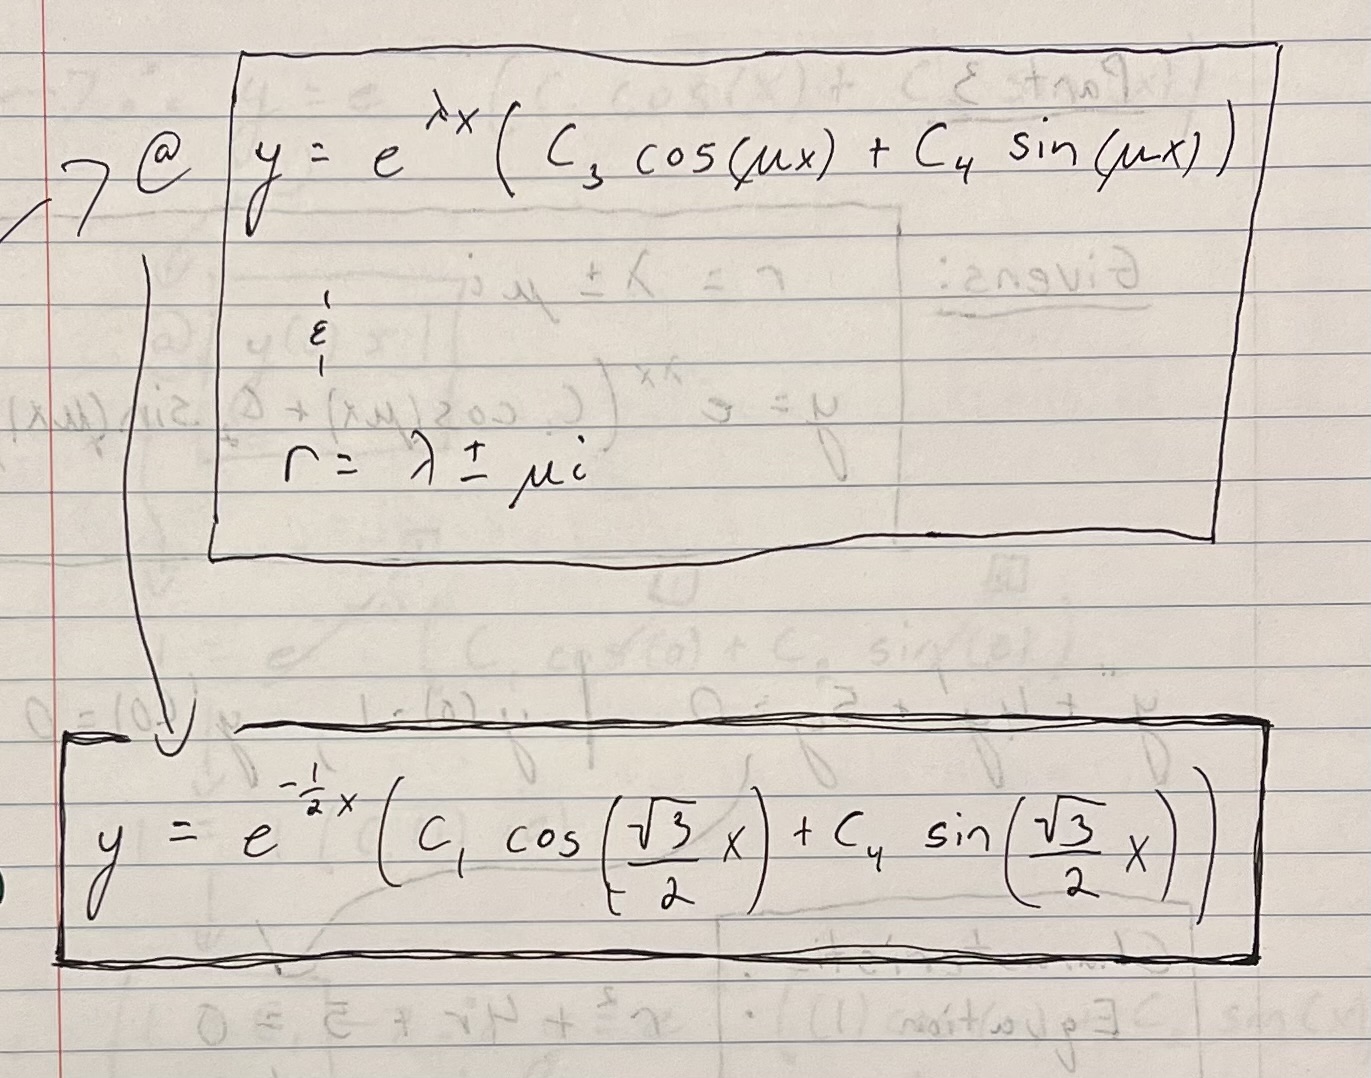 @ y = e^{λx} ( C₃ cos(μx) + C₄ sin(μx) )
&
r = λ ± μi
y = e^{-\frac{1}{2}x} ( C₁ cos( \frac{√3}{2} x ) + C₄ sin( \frac{√3}{2} x ) )